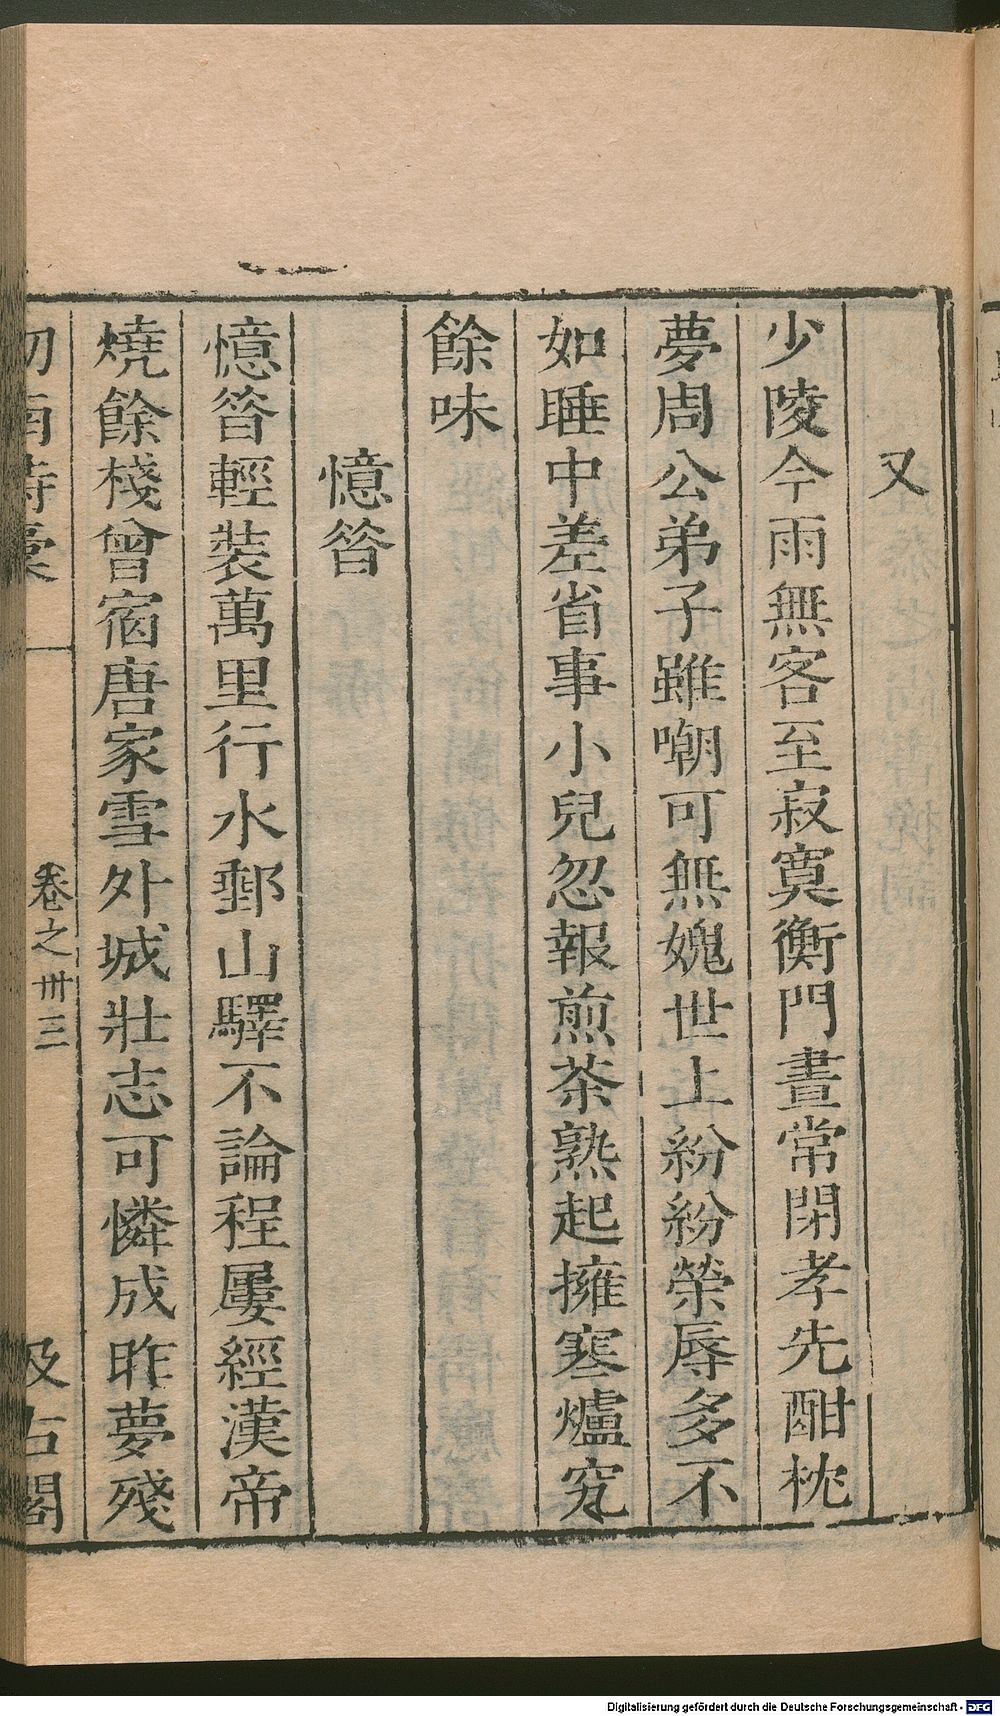 又
少陵今雨無客至寂寞衡門晝常閉孝先酣枕
夢周公弟子雖嘲可無媿世上紛紛榮辱多不
如睡中差省事小兒忽報煎茶熟起擁寒爐究
餘味
憶昝
憶昝輕裝萬里行水郵山驛不論程屢經漢帝
燒餘棧曾宿唐家雪外城壯志可憐成昨夢殘
劒南詩稾
卷之卅三
汲古閣
Digitalisierung gefördert durch die Deutsche Forschungsgemeinschaft - DFG